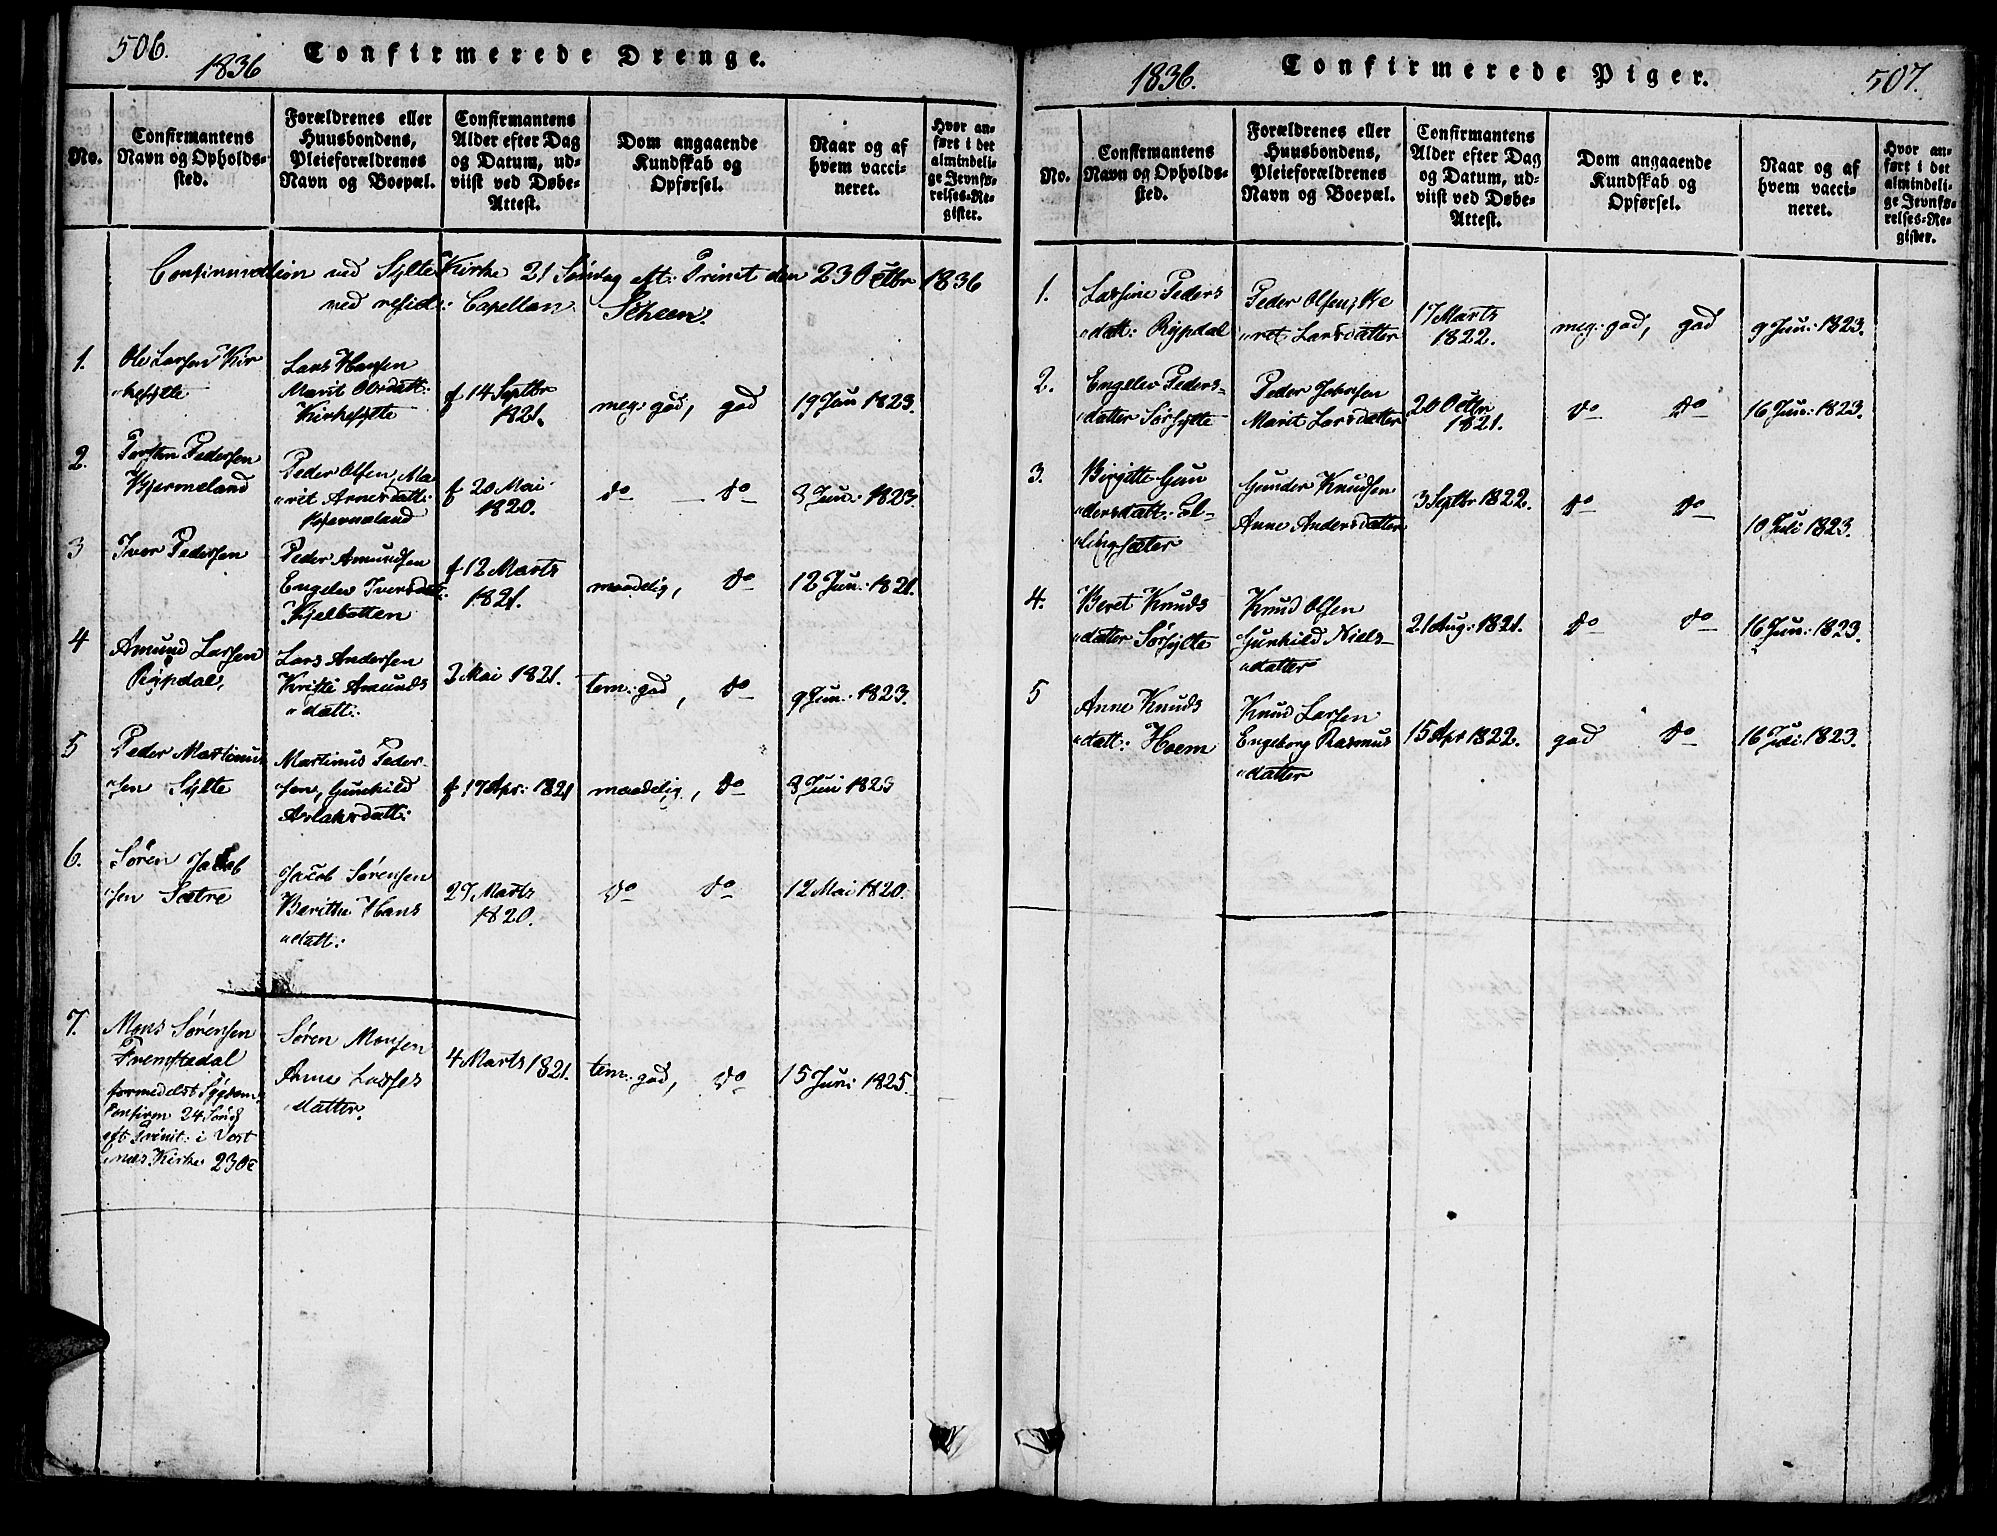 506.
1836
Confirmerede Drenge.
No.
Confirmantens
Navn og Opholds-
sted.
Forældrenes eller
Huusbondens,
Pleieforældrenes
Navn og Boepæl.
Confirmantens
Alder efter Dag
og Datum, ud-
viist ved Døbe-
Attest.
Dom angaaende
Kundskab og
Opførsel.
Naar og af
hvem vacci-
neret.
Hvor an-
ført i det
almindeli-
ge Jevnfø-
relses-Re-
gister.
Confirmation ved Sylte Kirke 21 Søndag eft: Trinit den 23 Octbr 1836
ved resid: Capellan Scheen.
1.
Ole Larsen Kir
"kesylte
Lars Hansen
Marit Olsdatt:
Kirkesylte
f 14 Septbr
1821.
meg: god, god
19 Jun 1823.
2.
Torsten Pedersen
Kjermeland
Peder Olsen, Ma
"rit Arnesdatt:
Kjermeland
f 20 Mai
1820.
do — do
8 Jun: 1823.
3
Iver Pedersen
Peder Amundsen
Engelev Iversdatt:
Kjelbotten
f 12 Marts
1821.
maadelig, do
12 Jun: 1821.
4
Amund Larsen
Rypdal,
Lars Andersen
Kristi Amunds
"datt:
2 Mai 1821.
tem: god, do
9 Jun: 1823.
5
Peder Martinus
"sen Sylte
Martinus Peder
"sen, Gunhild
Aslaksdatt:
f 17 Apr: 1821
maadelig, do
8 Juni 1823
6.
Søren Jacob
"sen Sætre
Jacob Sørensen
Berithe Hans
"datt:
27 Marts
1820.
do do
12 Mai 1820.
7.
Mons Sørensen
Fremstedal
formedelst Sygdom
Confirm 24 Sønd
eft Trinit: i Vest
"næs Kirke
Søren Monsen
Anne Lasses
"datter.
4 Marts 1821.
tem: god, do
15 Jun: 1825.
1836.
Confirmerede Piger.
507.
No.
Confirmantens
Navn og Opholds-
sted.
Forældrenes eller
Huusbondens,
Pleieforældrenes
Navn og Boepæl.
Confirmantens
Alder efter Dag
og Datum, ud-
viist ved Døbe-
Attest.
Dom angaaende
Kundskab og
Opførsel.
Naar og af
hvem vacci-
neret.
Hvor an-
ført i det
almindeli-
ge Jevnfø-
relses-Re-
gister.
1.
Lassine Peders
"datt: Rypdal
Peder Olsen,
"ret Larsdatter
17 Marts
1822.
meg: god, god
9 Jun: 1823.
2.
Engelev Peders-
"datter Sørsylte
Peder Johnsen
Marit Larsdatter
20 Octbr
1821.
do do
16 Jun: 1823.
3.
Birgitte Gun
"dersdatt: El-
"lingsæter
Gunder Knudsen
Anne Andersdatter
3 Septbr 1822.
do do
10 Juli 1823.
4.
Beret Knuds
"datter Sørsylte
Knud Olsen
Gunhild Niels-
"datter
21 Aug: 1821.
do do
16 Jun: 1823.
5
Anne Knuds
"datt: Hoem
Knud Larsen
Engeborg Rasmus
"datter
15 Apr 1822.
god do
16 Juli 1823.